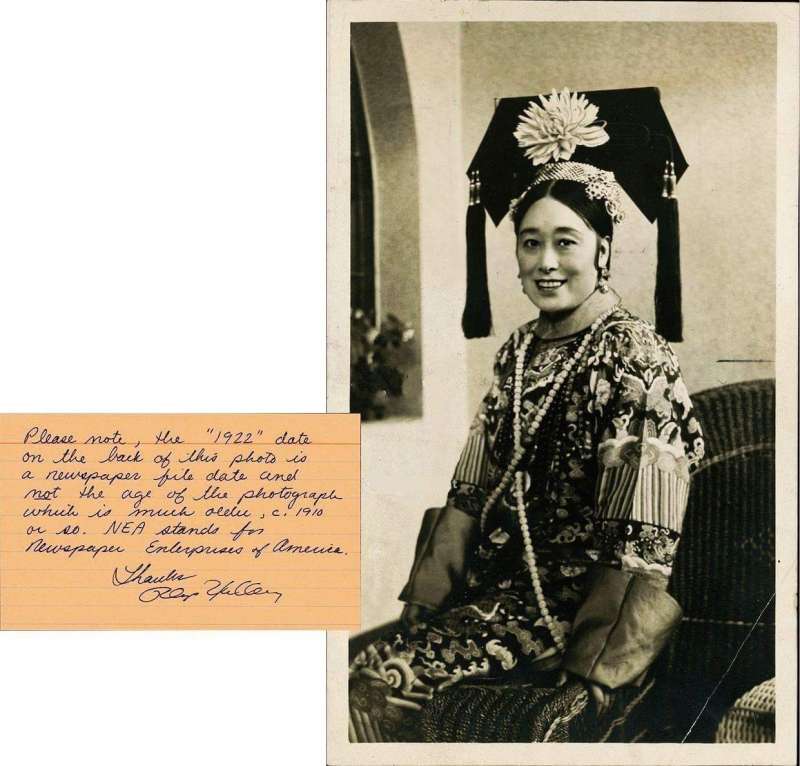 Please note, the "1922" date
on the back of this photo is
a newspaper file date and
not the age of the photograph
which is much older, c. 1910
or so. NEA stands for
Newspaper Enterprises of America.
Thanks